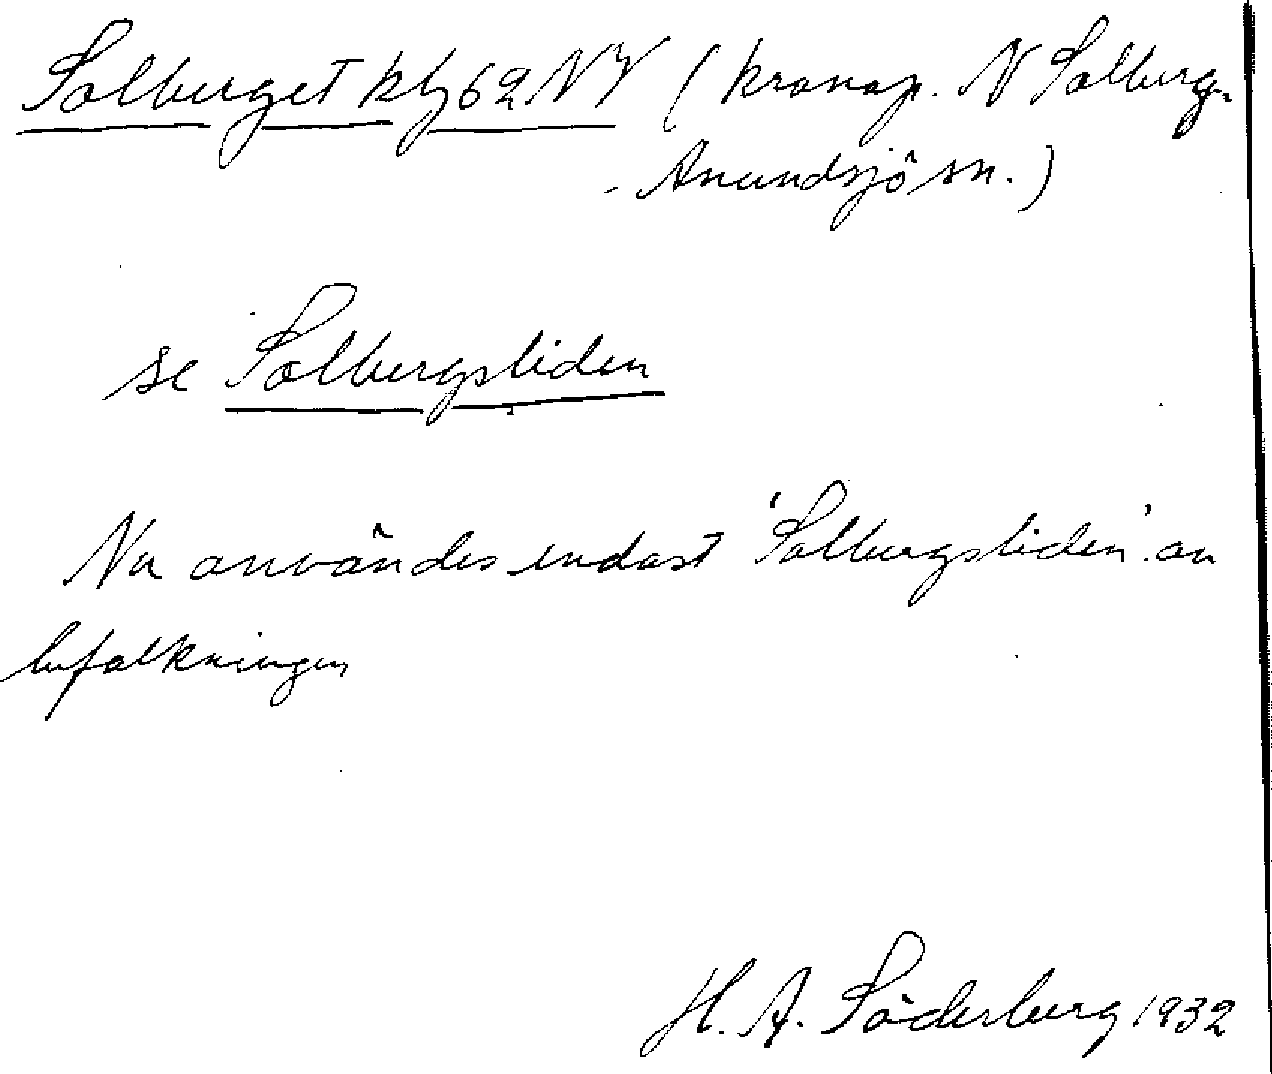 Solberget kbg 62 NV (kronop. N Solberg.
Anundsjö sn.)
se Solbergsliden
Nu användes endast 'Solbergsliden' av
befolkningen
H. A. Söderberg 1932